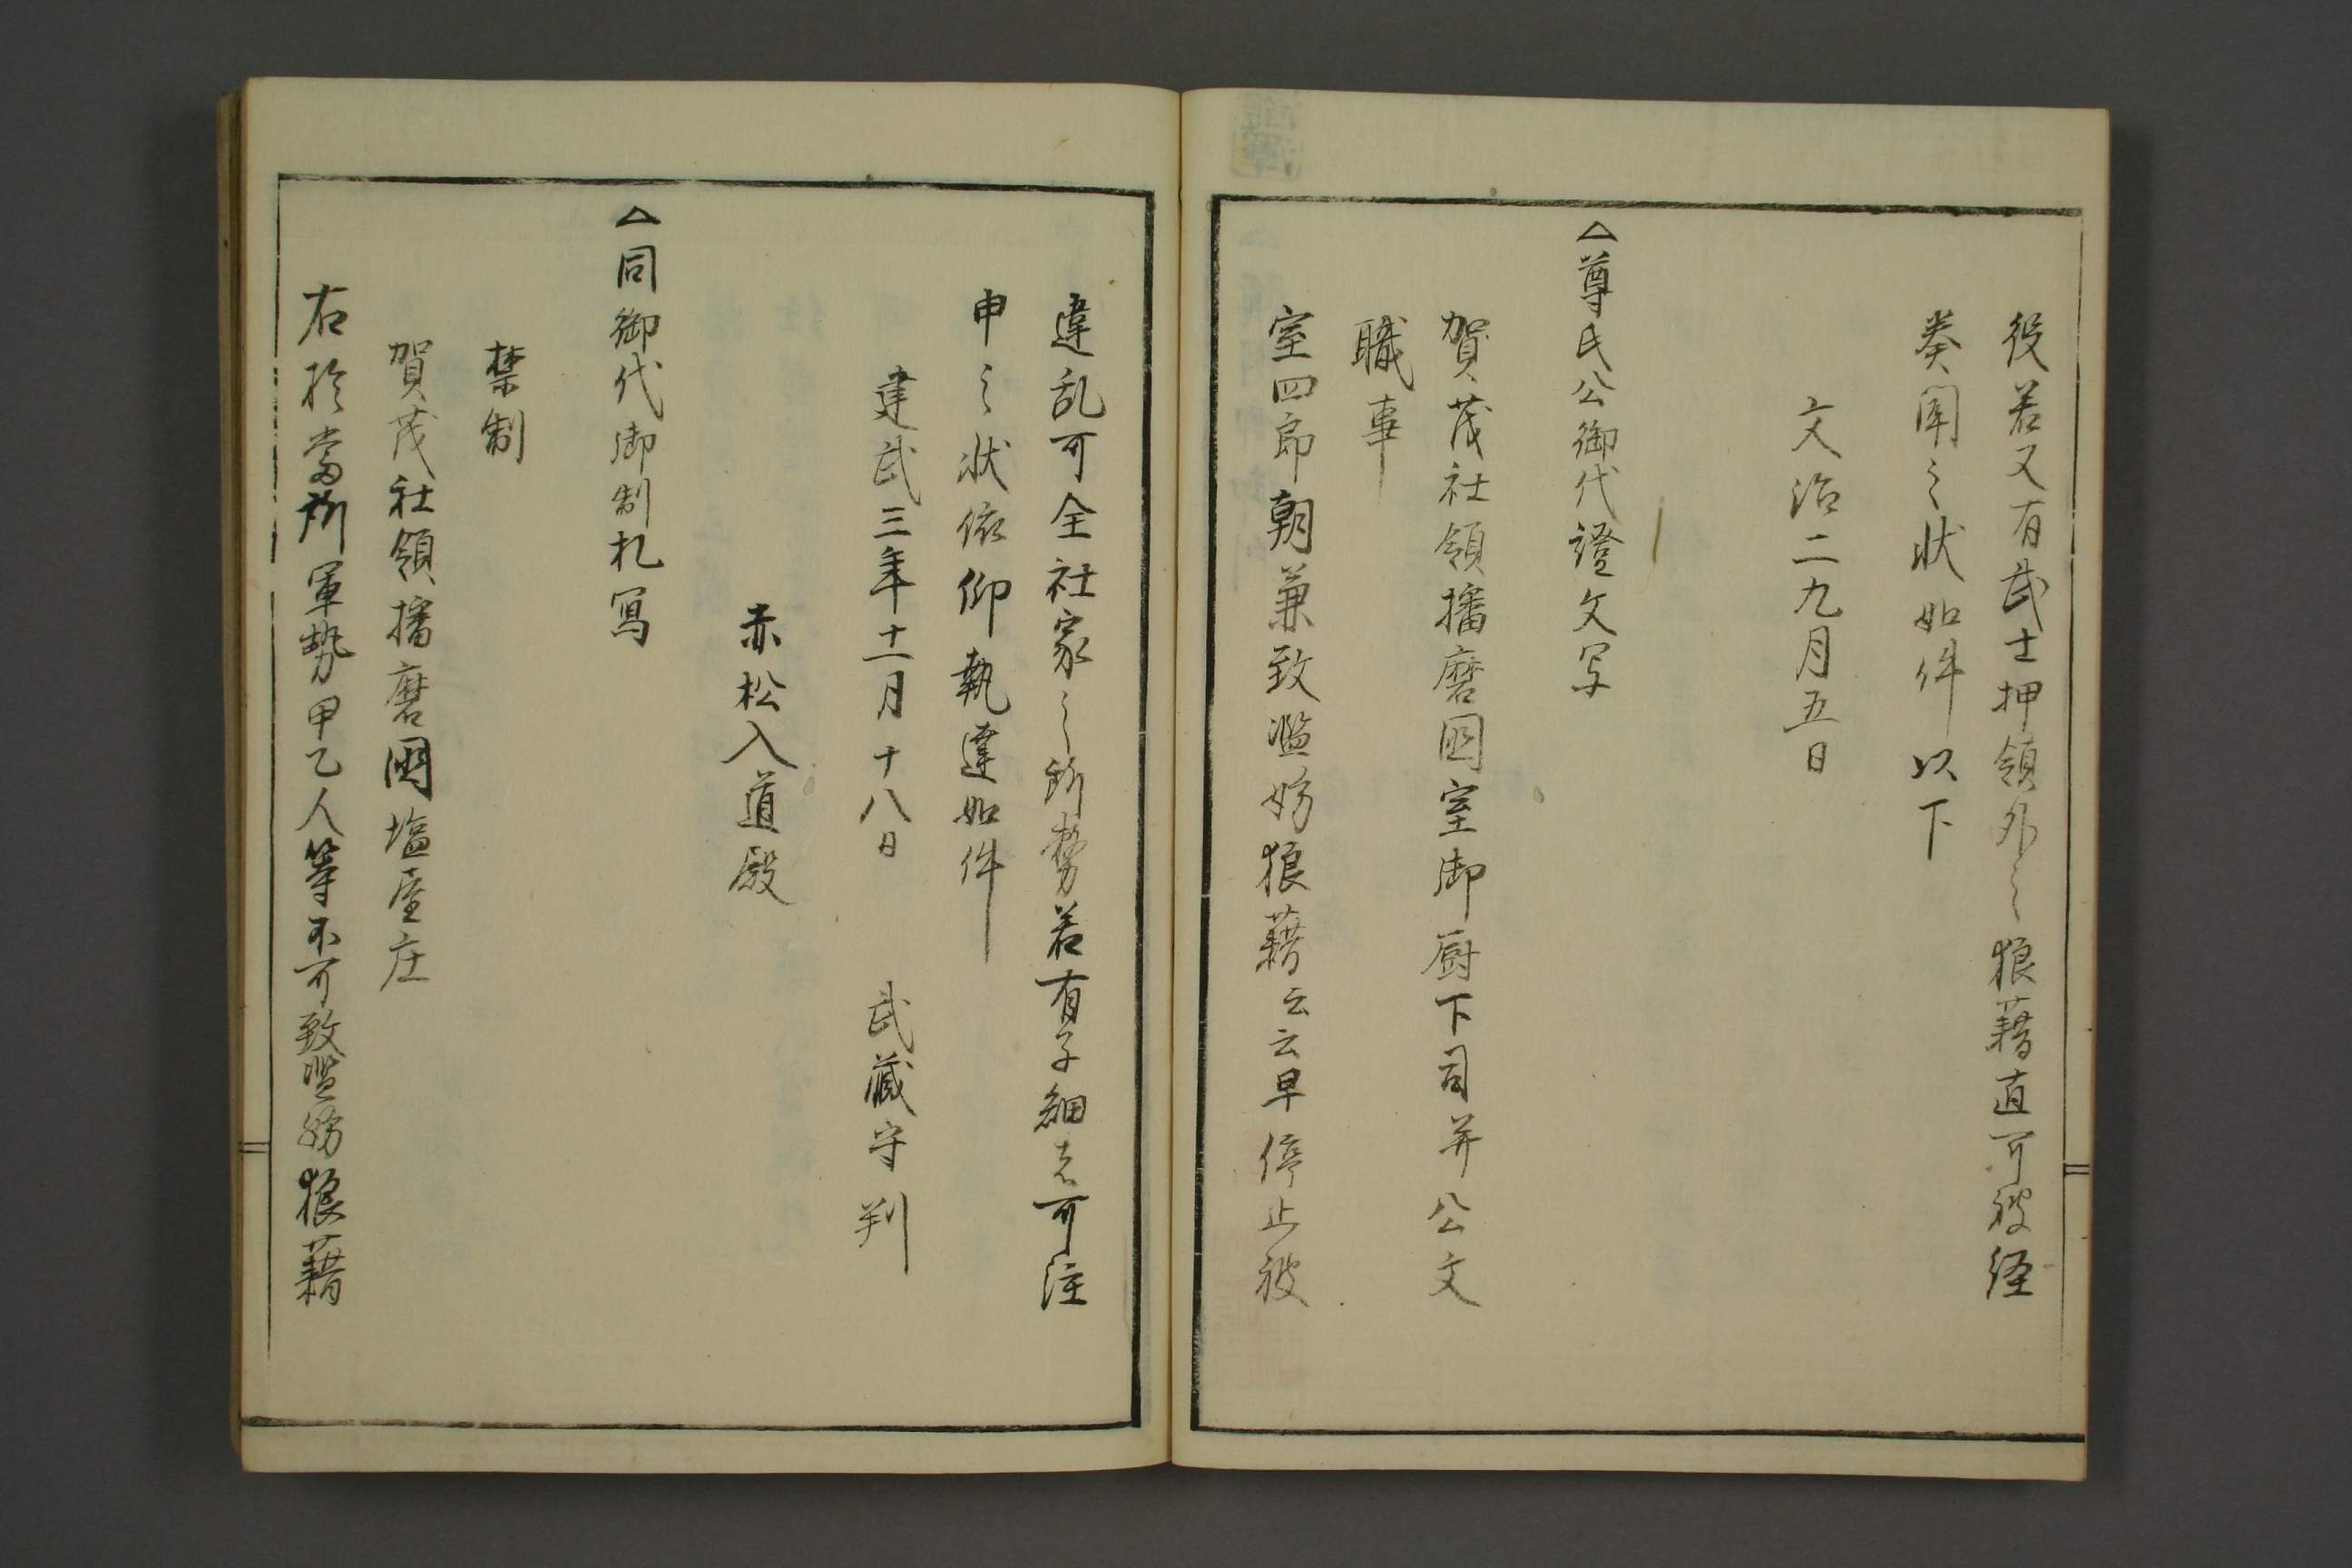 役若又有武士押領外之狼藉直可被経
奏聞之状如件以下
文治二九月五日
△尊氏公御代證文写
賀茂社領播磨国室御厨下司并公文
職事
室四郎朝兼致濫妨狼藉云云早停止被
違乱可全社家之所務若有子細者可注
申之状依仰執達如件
建武三年十一月十八日　武蔵守判
赤松入道殿
△同御代御制札写
禁制
賀茂社領播磨國塩屋庄
右於當所軍勢甲乙人等不可致濫妨狼藉